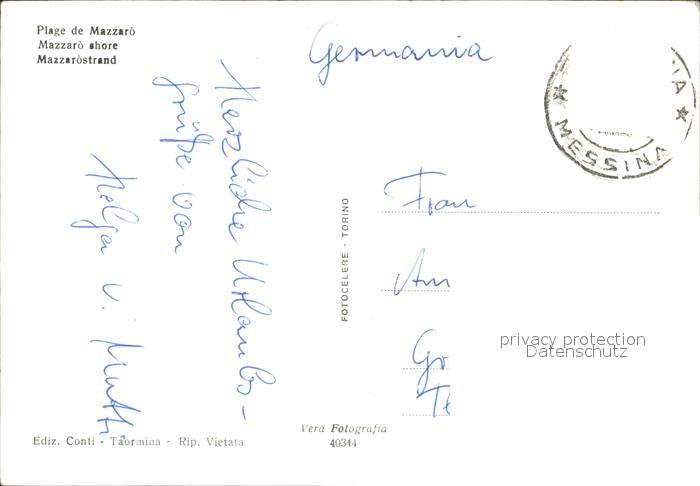 Plage de Mazzarò
Mazzarò shore
Mazzaròstrand
Germania
MESSINA
Herzliche Urlaubs-
grüße von
Helga u. Mutti
FOTOCELERE - TORINO
Frau
An
Gr
privacy protection
Datenschutz
Te
Vera Fotografia
40344
Ediz. Conti - Taormina - Rip. Vietata